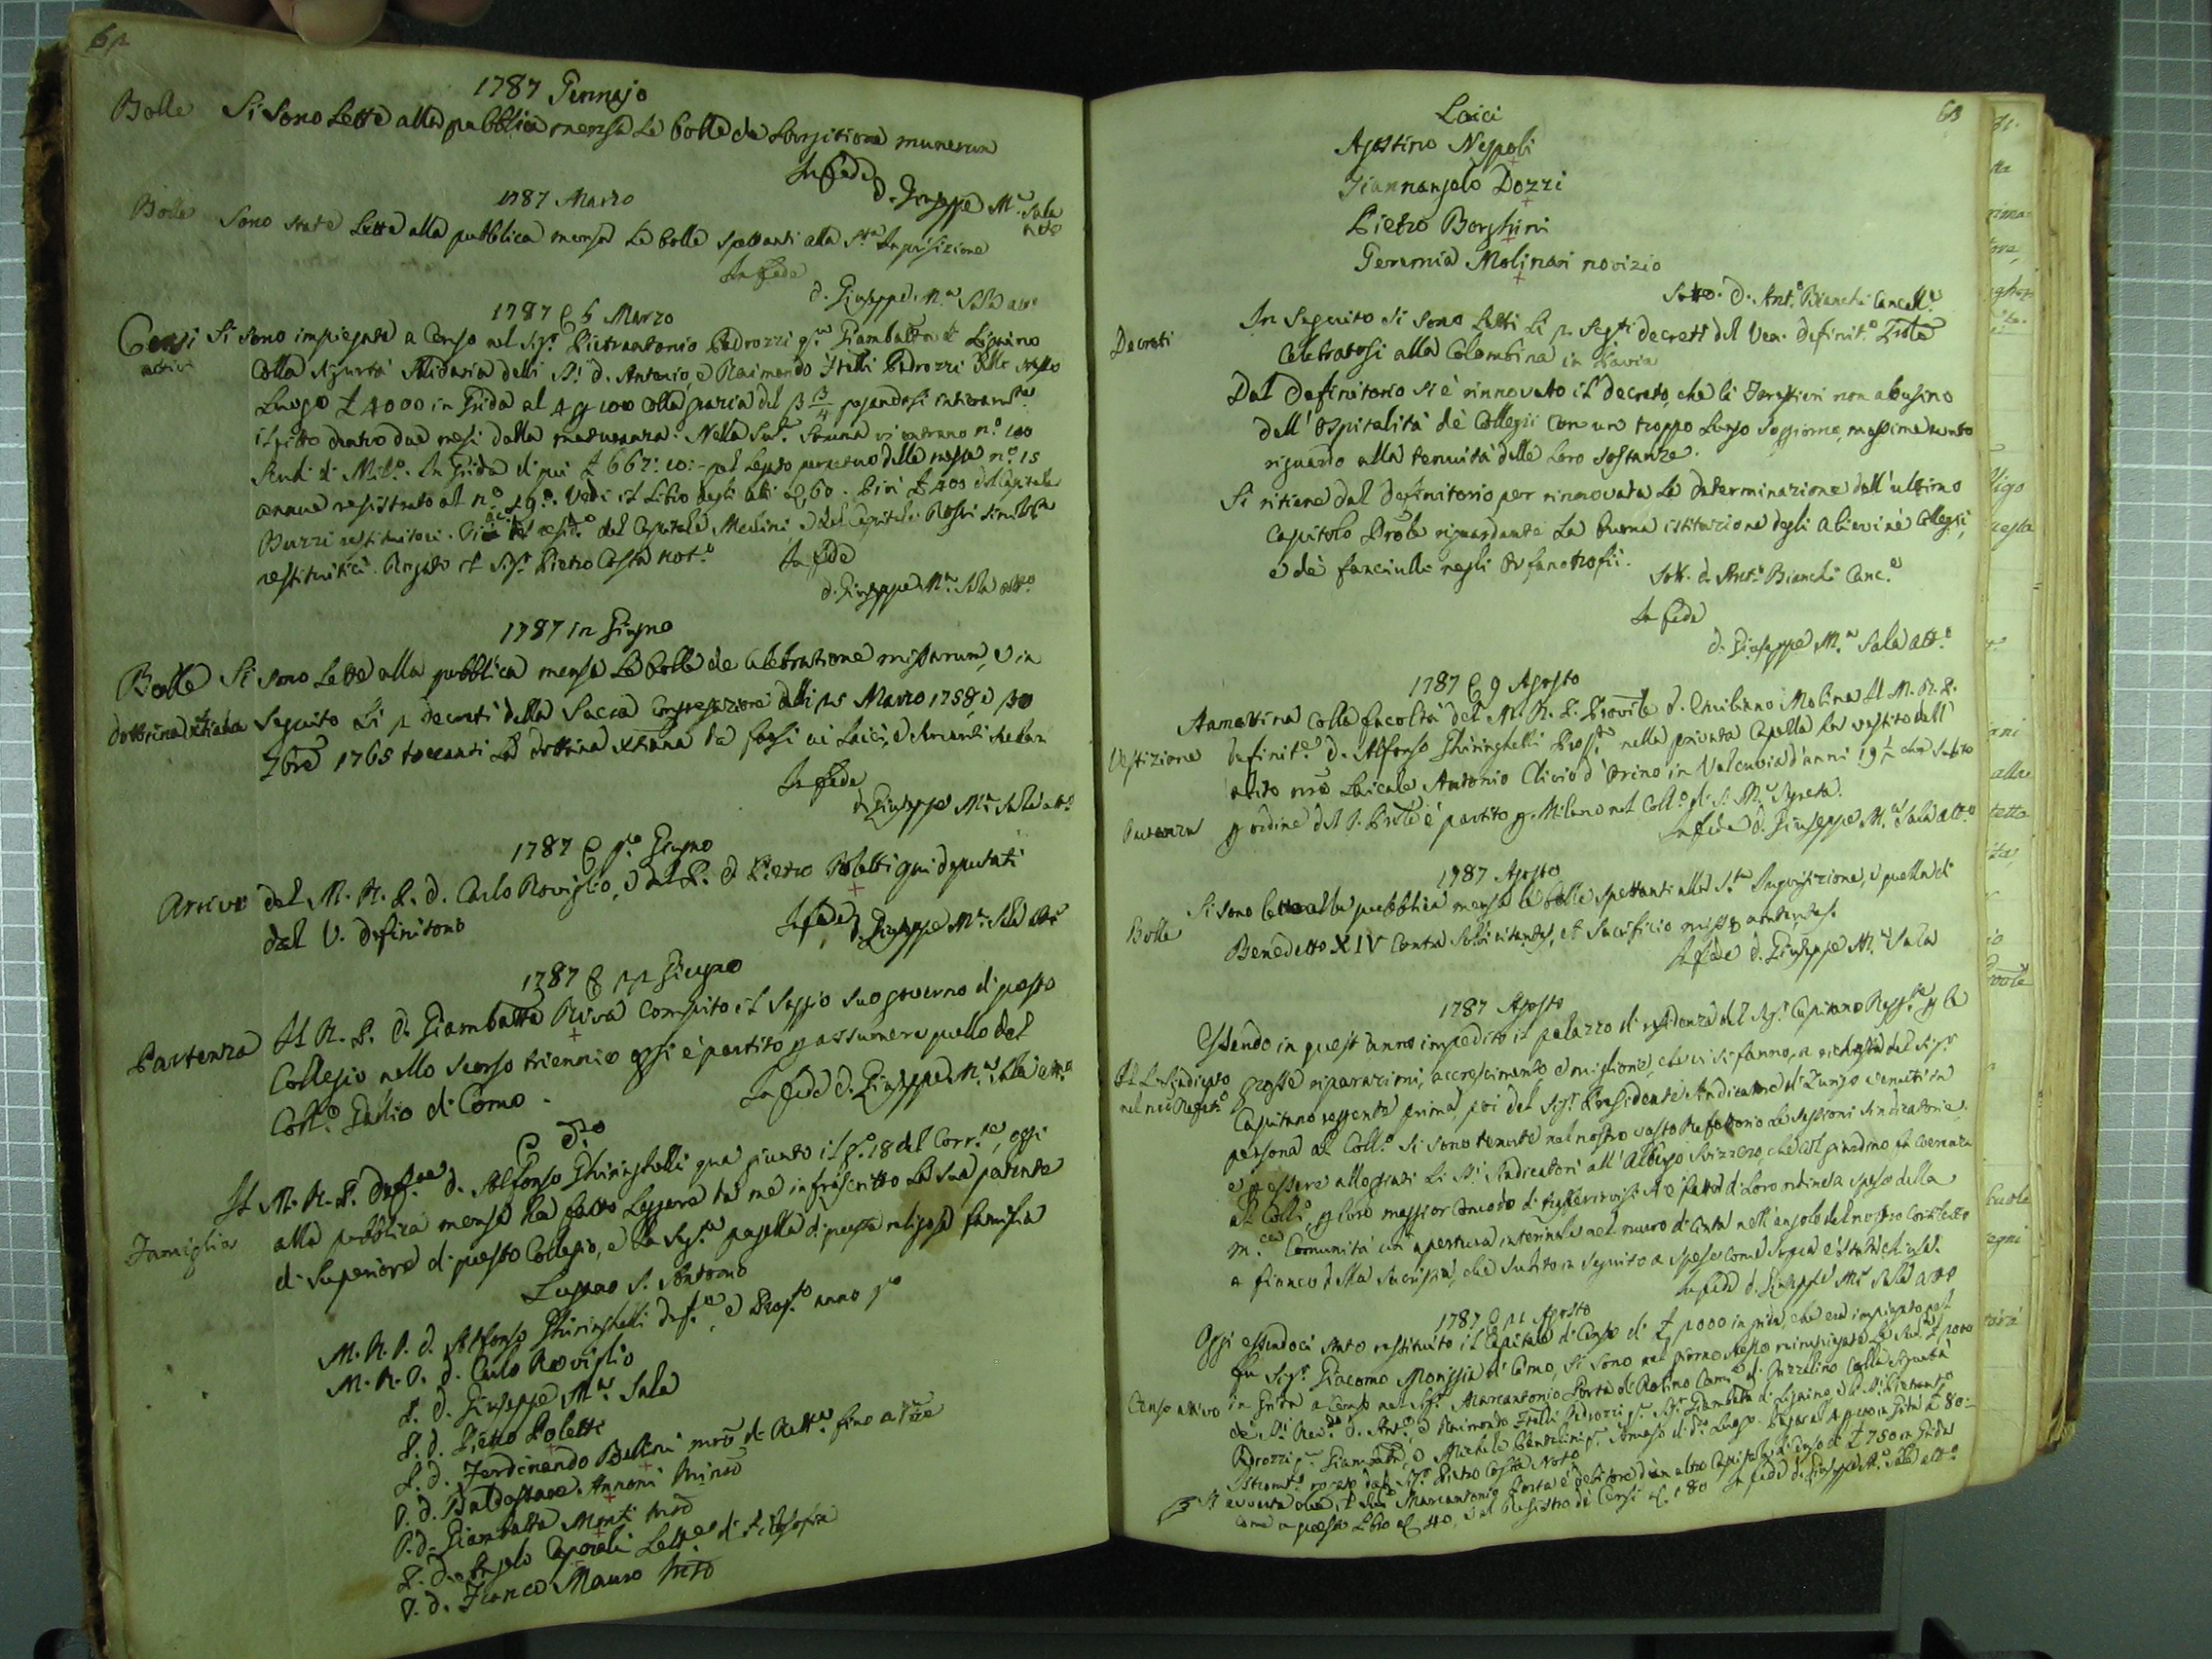 62
1787 Gennajo
Bolle Si sono Lette alla pubblica mensa Le bolle de Largitione munerum
In fede
d. Giuseppe M.a Sala
atto
1787 Marzo
Bolle Sono state Lette alla pubblica mensa Le bolle spettanti alla S.ta Inquisizione
In fede
d. Giuseppe M.a Sala att.o
1787 5 Marzo
Censi Si sono impiegate a Censo nel Sig.r Pietrantonio Pedrozzi q.m Giambatta di Lignino
attivi Colla sigurtà solidaria delli SS.i d. Antonio, e Raimondo Frelli Pedrozzi dello stesso
Luogo £ 4000 in Grida al 4 p 100 colla grazia del 3 3/4 pagandosi intieram.te
il fitto dentro due mesi dalla maturanza. Nella Sud.a Somma vi entrano n.o 100
Scudi di Mil.o In Grida di più £ 667: 10: pel Legato perpetuo delle messe n.o 15
annue registrato al n.o 29.o Vedi il Libro degli atti 60. Più £ 400 del Capitale
Buzzi restituitoci. del Capitale Meulini, e del Capitale Rossi
restituitici. Rogato il Sig.r Pietro Costa not.o In fede
d. Giuseppe M.a Sala att.o
1787 in Giugno
Bolle Si sono Lette alla pubblica mensa Le bolle de Celebratione missarum, e in
dottrina xtiana Seguito Li 2 decreti della Sacra Congregazione delli 25 Marzo 1758, e 30
7bre 1765 toccanti La dottrina xtiana da farsi ai Laici,
In fede
d. Giuseppe M.a Sala att.o
1787 p.o Giugno
Arrivo del M. R. P. d. Carlo Roviglio, e del P. d. Pietro Poletti qui deputati
dal V. definitorio In fede d. Giuseppe M.a Sala att.o
1787 22 Giugno
Partenza Il R. P. d. Giambatta Riva Compito il saggio suo governo di questo
Collegio nello scorso triennio oggi è partito p assumere quello del
Coll.o Gallio di Como. In fede d. Giuseppe M.a Sala att.o
d.o
Il M. R. P. Def.re d. Alfonso Ghiringhelli qua giunto il g.o 18 del Corr.te, oggi
Famiglia alla pubblica mensa ha fatto Leggere da me infrascritto La sua patente
di Superiore di questo Collegio, e la Seg.te pagella di questa religiosa famiglia
Lugano S. Antonio
M. R. P. d. Alfonso Ghiringhelli Def.re, e Prep.to anno p.o
M. R. P. d. Carlo Roviglio
P. d. Giuseppe M.a Sala
P. d. Pietro Poletti
P. d. Ferdinando Bellini mro di Rett.a fino a
P. d. Baldassare Annoni
P. d. Giambatta Monti mro
P. d. Angelo Caporali Lett.e di Filosofia
P. d. Franco Mauro mro
63
Laici
Agostino Nespoli
Giannangelo Dozzi
Pietro Borghini
Geremia Molinari novizio
Sott.o d. Ant.o Bianchi Cancell.e
Decreti In Seguito si sono Letti Li 2 Seg.ti decreti del Ven. definit.o
Celebratosi alla Colombina in Pavia
Dal Definitorio si è rinnovato il decreto, che li Forestieri non abusino
dell'ospitalità dè Collegii con un troppo Lungo Soggiorno, massimamente
riguardo alla tenuità delle Loro sostanze.
Si ritiene dal definitorio per rinnovata La determinazione dell'ultimo
Capitolo Prole riguardante La buona istituzione degli Alievi nè Collegii,
e dè fanciulli negli Orfanotrofii.
Sott. d. Ant.o Bianchi Canc.e
In fede
d. Giuseppe M.a Sala att.o
1787 9 Agosto
Stamattina Colla facoltà del M. R. P. Provle d. Emiliano Molina Il M. R. P.
Vestizione definit.e d. Alfonso Ghiringhelli Prep.to nella privata Capella ha vestito dell'
abito nro Laicale Antonio Clivio d'Orino in Valcuvia d'anni 19 1/2 che subito
Partenza p ordine del P. Prole è partito p Milano nel Coll.o di S. M.a Segreta.
In fede d. Giuseppe M.a Sala att.o
1787 Agosto
Bolle Si sono lette alla pubblica mensa le bolle spettanti alla S.ta Inquisizione, e quella di
Benedetto XIV contra et Sacrificio missae
In fede d. Giuseppe M.a Sala
1787 Agosto
Essendo in quest'anno impedito il palazzo di residenza del Sig.r Capitano Regg.te p le
Il Sindicato grosse riparazioni, accrescimento e migliorie, che vi si fanno, a richiesta del Sig.r
nel nro Refett.o Capitano reggente prima, poi del Sig.r Presidente Sindicatore di Zurigo venuti in
persona al Coll.o Si sono tenute nel nostro vasto Refettorio Le Sessioni Sindicatorie.
e p essere alloggiati Li SS.i Sindicatori all'Albergo Svizzero, che col giardino fa coerenza
al Coll.o, p loro maggior Comodo di si è fatta di Loro ordine a spese della
m.ca Comunità un'apertura interinale nel muro di Cinta nell'angolo del nostro Cortiletto
a fianco della Sacristia, che subito in seguito a spese come sopra è stata chiusa.
In fede d. Giuseppe M.a Sala att.o
1787 21 Agosto
Oggi essendoci stato restituito il Capitale di Censo di £ 2000 in grida, che era impiegato nel
fu Sig.r Giacomo Monigia di Como, Si sono nel giorno stesso reimpiegate Le Sud.e £ 2000
Censo attivo in Grida a Censo nel Sig.r Marcantonio Porta di Rolino Com.e di Mezzolino colla sigurtà
de SS.i Rev.do d. Ant.o, e Raimondo Frelli Pedrozzi q.m Sig.r Giambatta di Lignino, e de SS.i Pietranto
Pedrozzi q.m Giambatta, e Michele Bentolini q.m Tomaso di d.o Luogo. Pagarà 4 p 100 in Grida £ 80:
Istrom.to rogato dal Sig.r Pietro Costa Noto
Si avverta che il Sud.o Marcantonio Porta è debitore d'un altro Capitale di Censo di £ 750 in Grida
come a questo Libro 40, e al Registro dè Censi 180 In fede d. Giuseppe M.a Sala att.o